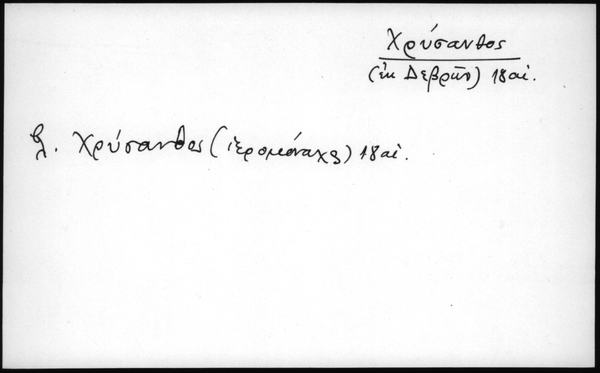 Χρύσανθος
(ἐκ Δεβρῶν) 18 αἰ.
βλ. Χρύσανθος (ἱερομόναχος) 18 αἰ.